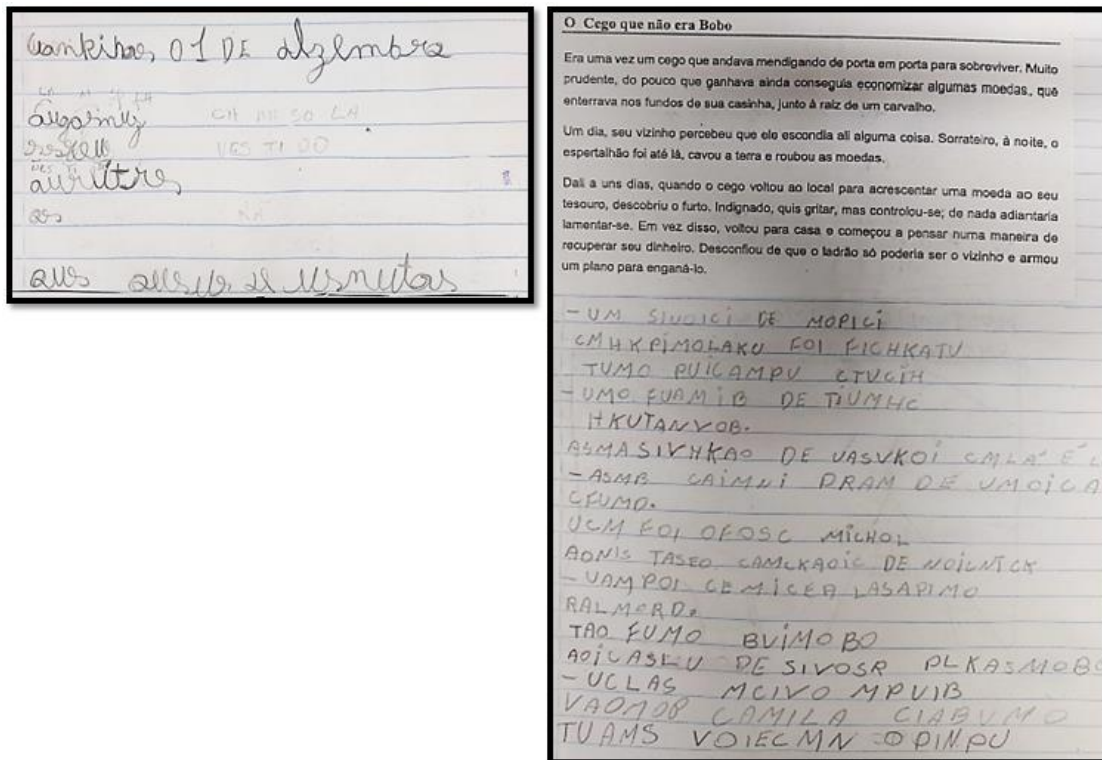 01 DE
CA MI SO LA
VES TI DO
O Cego que não era Bobo
Era uma vez um cego que andava mendigando de porta em porta para sobreviver. Muito
prudente, do pouco que ganhava ainda conseguia economizar algumas moedas, que
enterrava nos fundos de sua casinha, junto à raiz de um carvalho.
Um dia, seu vizinho percebeu que ele escondia ali alguma coisa. Sorrateiro, à noite, o
espertalhão foi até lá, cavou a terra e roubou as moedas.
Dali a uns dias, quando o cego voltou ao local para acrescentar uma moeda ao seu
tesouro, descobriu o furto. Indignado, quis gritar, mas controlou-se; de nada adiantaria
lamentar-se. Em vez disso, voltou para casa e começou a pensar numa maneira de
recuperar seu dinheiro. Desconfiou de que o ladrão só poderia ser o vizinho e armou
um plano para enganá-lo.
- UM SIVOICI DE MOPICI
CMHKPIMOLAKU FOI FICHKATU
TUMO PUICAMPU CTUCIH
- UMO FUAMIB DE TIUMHC
HKUTANVOB.
ASMASIVHKAO DE VASVKOI CMLA É L
- ASMB CAIMNI DRAM DE UMOICA
CFUMO.
UCM FOI OFOSC MICHOL
AONIS TASEO CAMCKAOIC DE NOILNICK
- VAMPOI CEMICEA LASAPIMO
RALMORD.
TAO FUMO BVIMOBO
AOICASKU DE SIVOSR PLKASMOBO
- UCLAS MCIVO MPUIB
VAOMOB CAMILA CIABUMO
TUAMS VOIECMN OPINPU